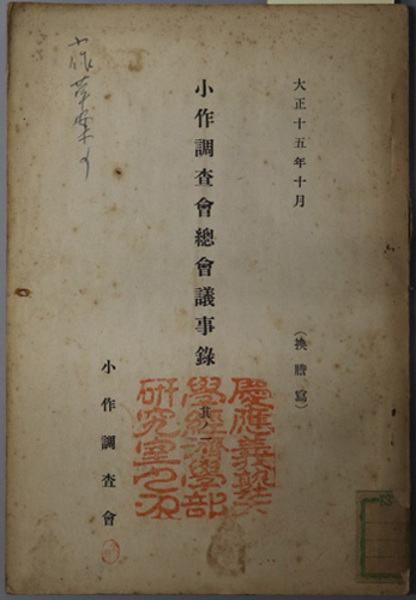 大正十五年十月
（換謄寫）
小作調査會總會議事錄
其ノ一
小作調査會
慶應義塾大
學經濟學部
研究室之印